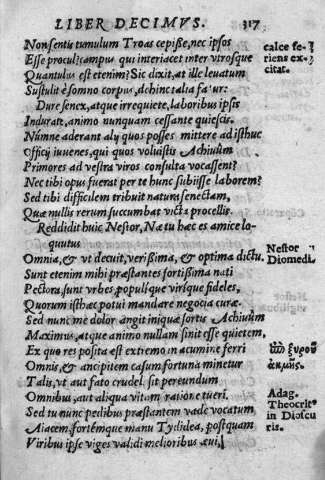 LIBER DECIMVS. 317
Non sentis tumulum Troas cepiße, nec ipsos
Esse procul? campus qui interiacet inter vtrosque
Quantulus est etenim? Sic dixit, at ille leuatum
Sustulit è somno corpus, dehinc talia fatur:
Dure senex, atque irrequiete, laboribus ipsis
Indurate, animo nunquam cessante quiescis.
Númne aderant alij quos posses mittere ad isthuc
Officij iuuenes, qui quos voluistis Achiuûm
Primores ad vestra viros consulta vocassent?
Nec tibi opus fuerat per te hunc subijsse laborem?
Sed tibi difficilem tribuit natura senectam,
Quæ nullis rerum succumbat victa procellis.
Reddidit huic Nestor, Næ tu hæc es amice lo-
quutus
Omnia, & vt decuit, verißima, & optima dictu.
Sunt etenim mihi præstantes fortißima nati
Pectora, sunt vrbes populíque viríque fideles,
Quorum isthæc potui mandare negocia curæ.
Sed nunc me dolor angit iniquæ sortis Achiuûm
Maximus, atque animo nullam sinit esse quietem,
Ex quo res posita est extremo in acumine ferri
Omnis, & ancipitem casum fortuna minetur
Talis, vt aut fato crudeli sit pereundum
Omnibus, aut aliqua vitam ratione tueri.
Sed tu nunc pedibus præstantem vade vocatum
Aiacem, fortémque manu Tydidea, postquam
Viribus ipse viges validi melioribus æui,
calce fe-
riens ex-
citat.
Nestor
Diomedi.
ἐπὶ ξυροῦ
ἀκμῆς.
Adag.
Theocrit
in Dioscu
ris.